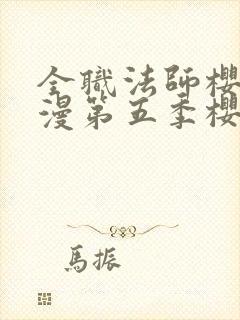 全職法師櫻
漫第五季櫻
馬振